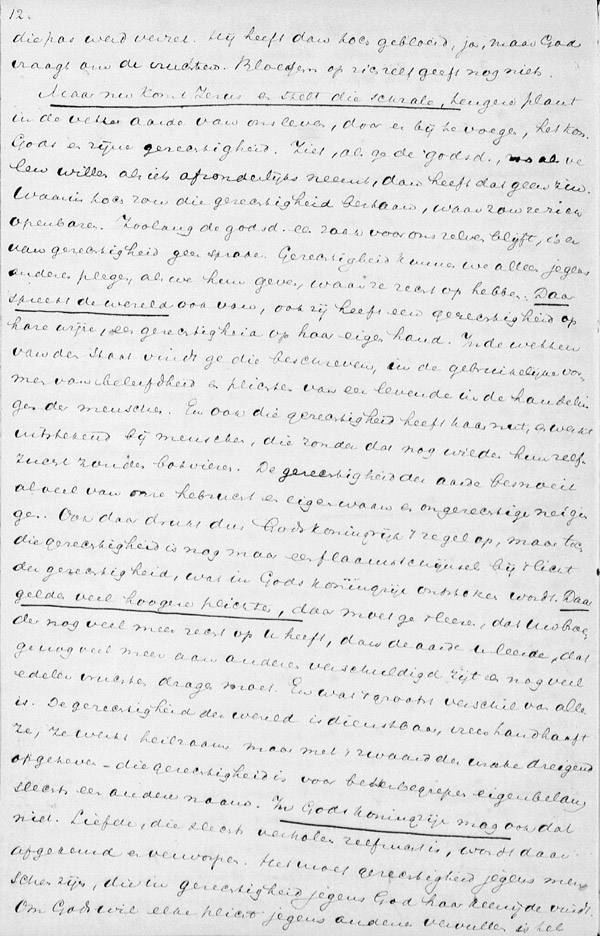 12.
die pas werd verzet. Hij heeft dan ook gebloeid, ja, maar God
vraagt om de vruchten. Bloesem op zichzelf geeft nog niets.
Maar nu komt Jezus en stelt die schrale, hongere plant
in de vette aarde van ons leven, door er bij te voegen, het kon.
Gods en zijne gerechtigheid. Ziet, als ge de godsd.,
willen als iets afzonderlijks neemt, dan heeft dat geen zin.
Waarin toch zou die gerechtigheid bestaan, waar zou ze zich
openbaren. Zoolang de godsd. een zaak voor ons zelven blijft, is er
van gerechtigheid geen sprake. Gerechtigheid kunnen we alleen jegens
anderen plegen, als we hun geven, waar ze recht op hebben. Daar
spreekt de wereld ook van, ook zij heeft een gerechtigheid op
hare wijze, een gerechtigheid op haar eigen hand. In de wetten
van den Staat vindt ge die beschreven, in de gebruikelijke vor-
men van beleefdheid en plichten van een levende in de handelin-
gen der menschen. En ook die gerechtigheid heeft haar nut, en werkt
uitstekend bij menschen, die zonder dat nog wilder hun zelf-
zucht zouden botvieren. De gerechtigheid der aarde besnoeit
al veel van onze hebzucht en eigenwaan en ongerechtige neigin-
gen. Ook daar drukt dus Gods koningrijk 't zegel op, maar toch
die gerechtigheid is nog maar een flauw schijnsel bij 't licht
der gerechtigheid, wat in Gods koningrijk ontstoken wordt. Daar
gelden veel hoogere plichten, daar moet ge 't leeren, dat Uw broe-
der nog veel meer recht op U heeft, dan de aarde U leerde, dat
ge nog veel meer aan anderen verschuldigd zijt en nog veel
edeler vruchten dragen moet. En wat 't groote verschil van alles
is. De gerechtigheid der wereld is dienstbaar, vrees handhaaft
ze, ze werkt heilzaam maar met 't zwaard der wrake dreigend
opgeheven – die gerechtigheid is voor beter begrepen eigenbelang
slechts een andere naam. In Gods koningrijk mag ook dat
niet. Liefde, die slechts verholen zelfzucht is, wordt daar
afgekeurd en verworpen. Het moet gerechtigheid jegens men-
schen zijn, die in gerechtigheid jegens God haar
Om Gods wil elke plicht jegens anderen vervullen is het